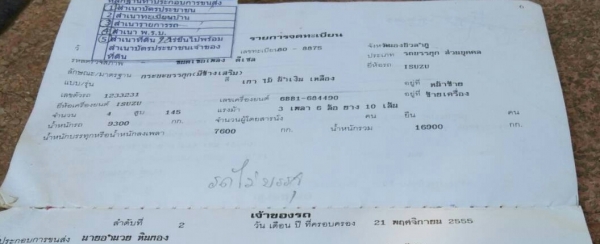 หลักฐานทำประกอบการขนส่ง
1 สำเนาบัตรประชาชน
2 สำเนาทะเบียนบ้าน
3 สำเนารายการรถ
4 สำเนา พ.ร.บ.
5 สำเนาที่ดิน
สำเนาบัตรประชาชนเจ้าของ
ที่ดิน
รายการจดทะเบียน
เลขทะเบียน 80 - 8875 จังหวัด
รถบรรทุก ส่วนบุคคล
เชื้อเพลิง ดีเซล ยี่ห้อรถ ISUZU
ลักษณะ/มาตรฐาน กระบะบรรทุก(มีข้างเสริม)
แบบ/รุ่น สี เทา ไม้ ฟ้าเงิน เหลือง
เลขตัวรถ 1233231 อยู่ที่ หน้าซ้าย
ยี่ห้อเครื่องยนต์ ISUZU เลขเครื่องยนต์ 6BB1-684490 อยู่ที่ ซ้ายเครื่อง
จำนวน 4 สูบ 145 แรงม้า 3 เพลา 6 ล้อ ยาง 10 เส้น
น้ำหนักรถ 9300 กก. จำนวนผู้โดยสารนั่ง คน ยืน คน
น้ำหนักบรรทุกหรือน้ำหนักลงเพลา 7600 กก. น้ำหนักรวม 16900 กก.
เจ้าของรถ
ลำดับที่ 2 วัน เดือน ปี ที่ครอบครอง 21 พฤศจิกายน 2555
ประกอบการขนส่ง นายอำนวย